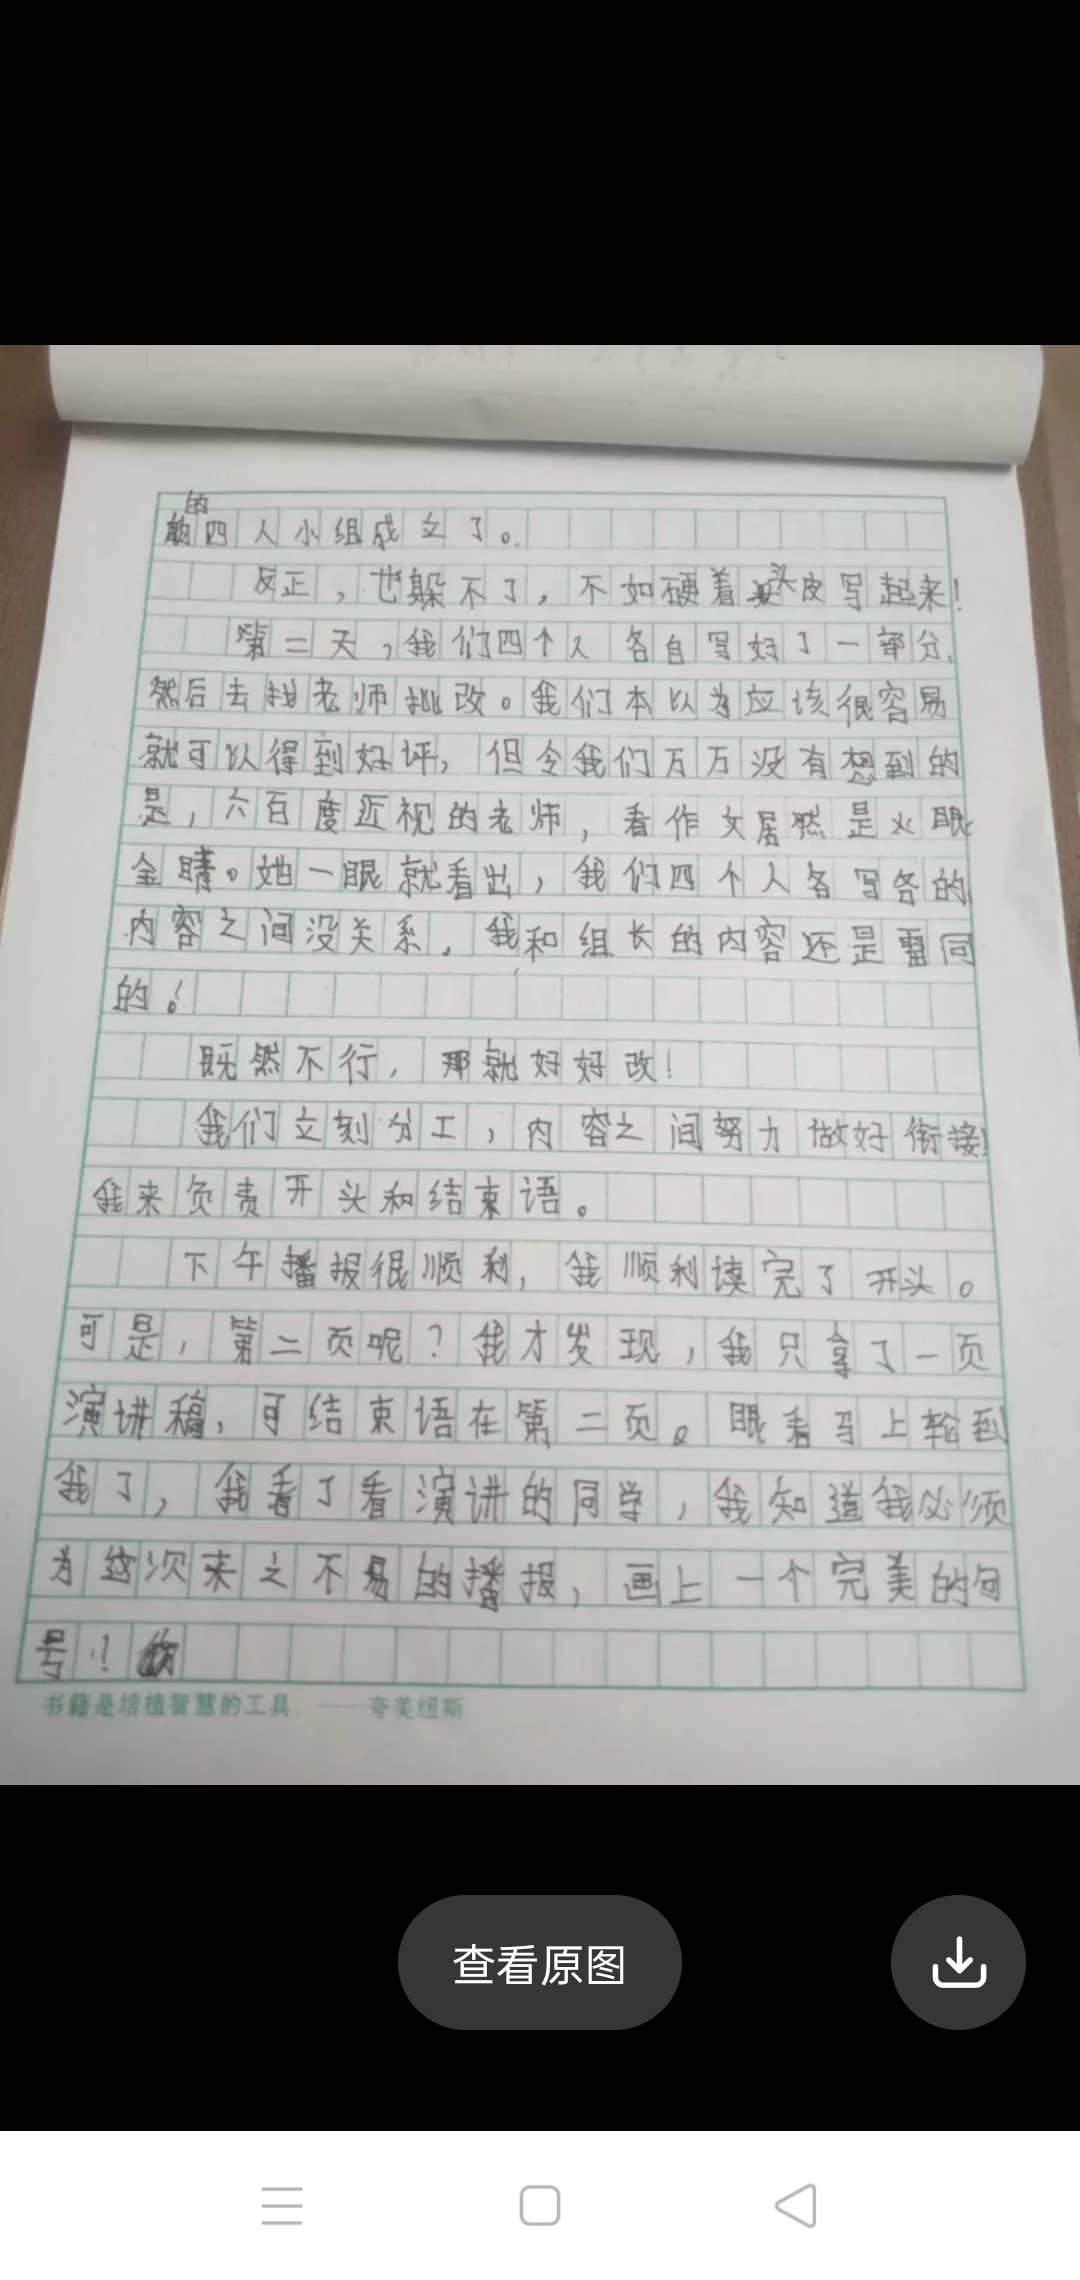 的
四人小组成立了。
反正，也躲不了，不如硬着头皮写起来！
第二天，我们四个人各自写好了一部分，
然后去找老师批改。我们本以为应该很容易
就可以得到好评，但令我们万万没有想到的
是，六百度近视的老师，看作文居然是火眼
金睛。她一眼就看出，我们四个人各写各的，
内容之间没关系，我和组长的内容还是雷同
的！
既然不行，那就好好改！
我们立刻分工，内容之间努力做好衔接！
我来负责开头和结束语。
下午播报很顺利，我顺利读完了开头。
可是，第二页呢？我才发现，我只拿了一页
演讲稿，可结束语在第二页。眼看马上轮到
我了，我看了看演讲的同学，我知道我必须
为这次来之不易的播报，画上一个完美的句
号！
书籍是培植智慧的工具。——夸美纽斯
查看原图